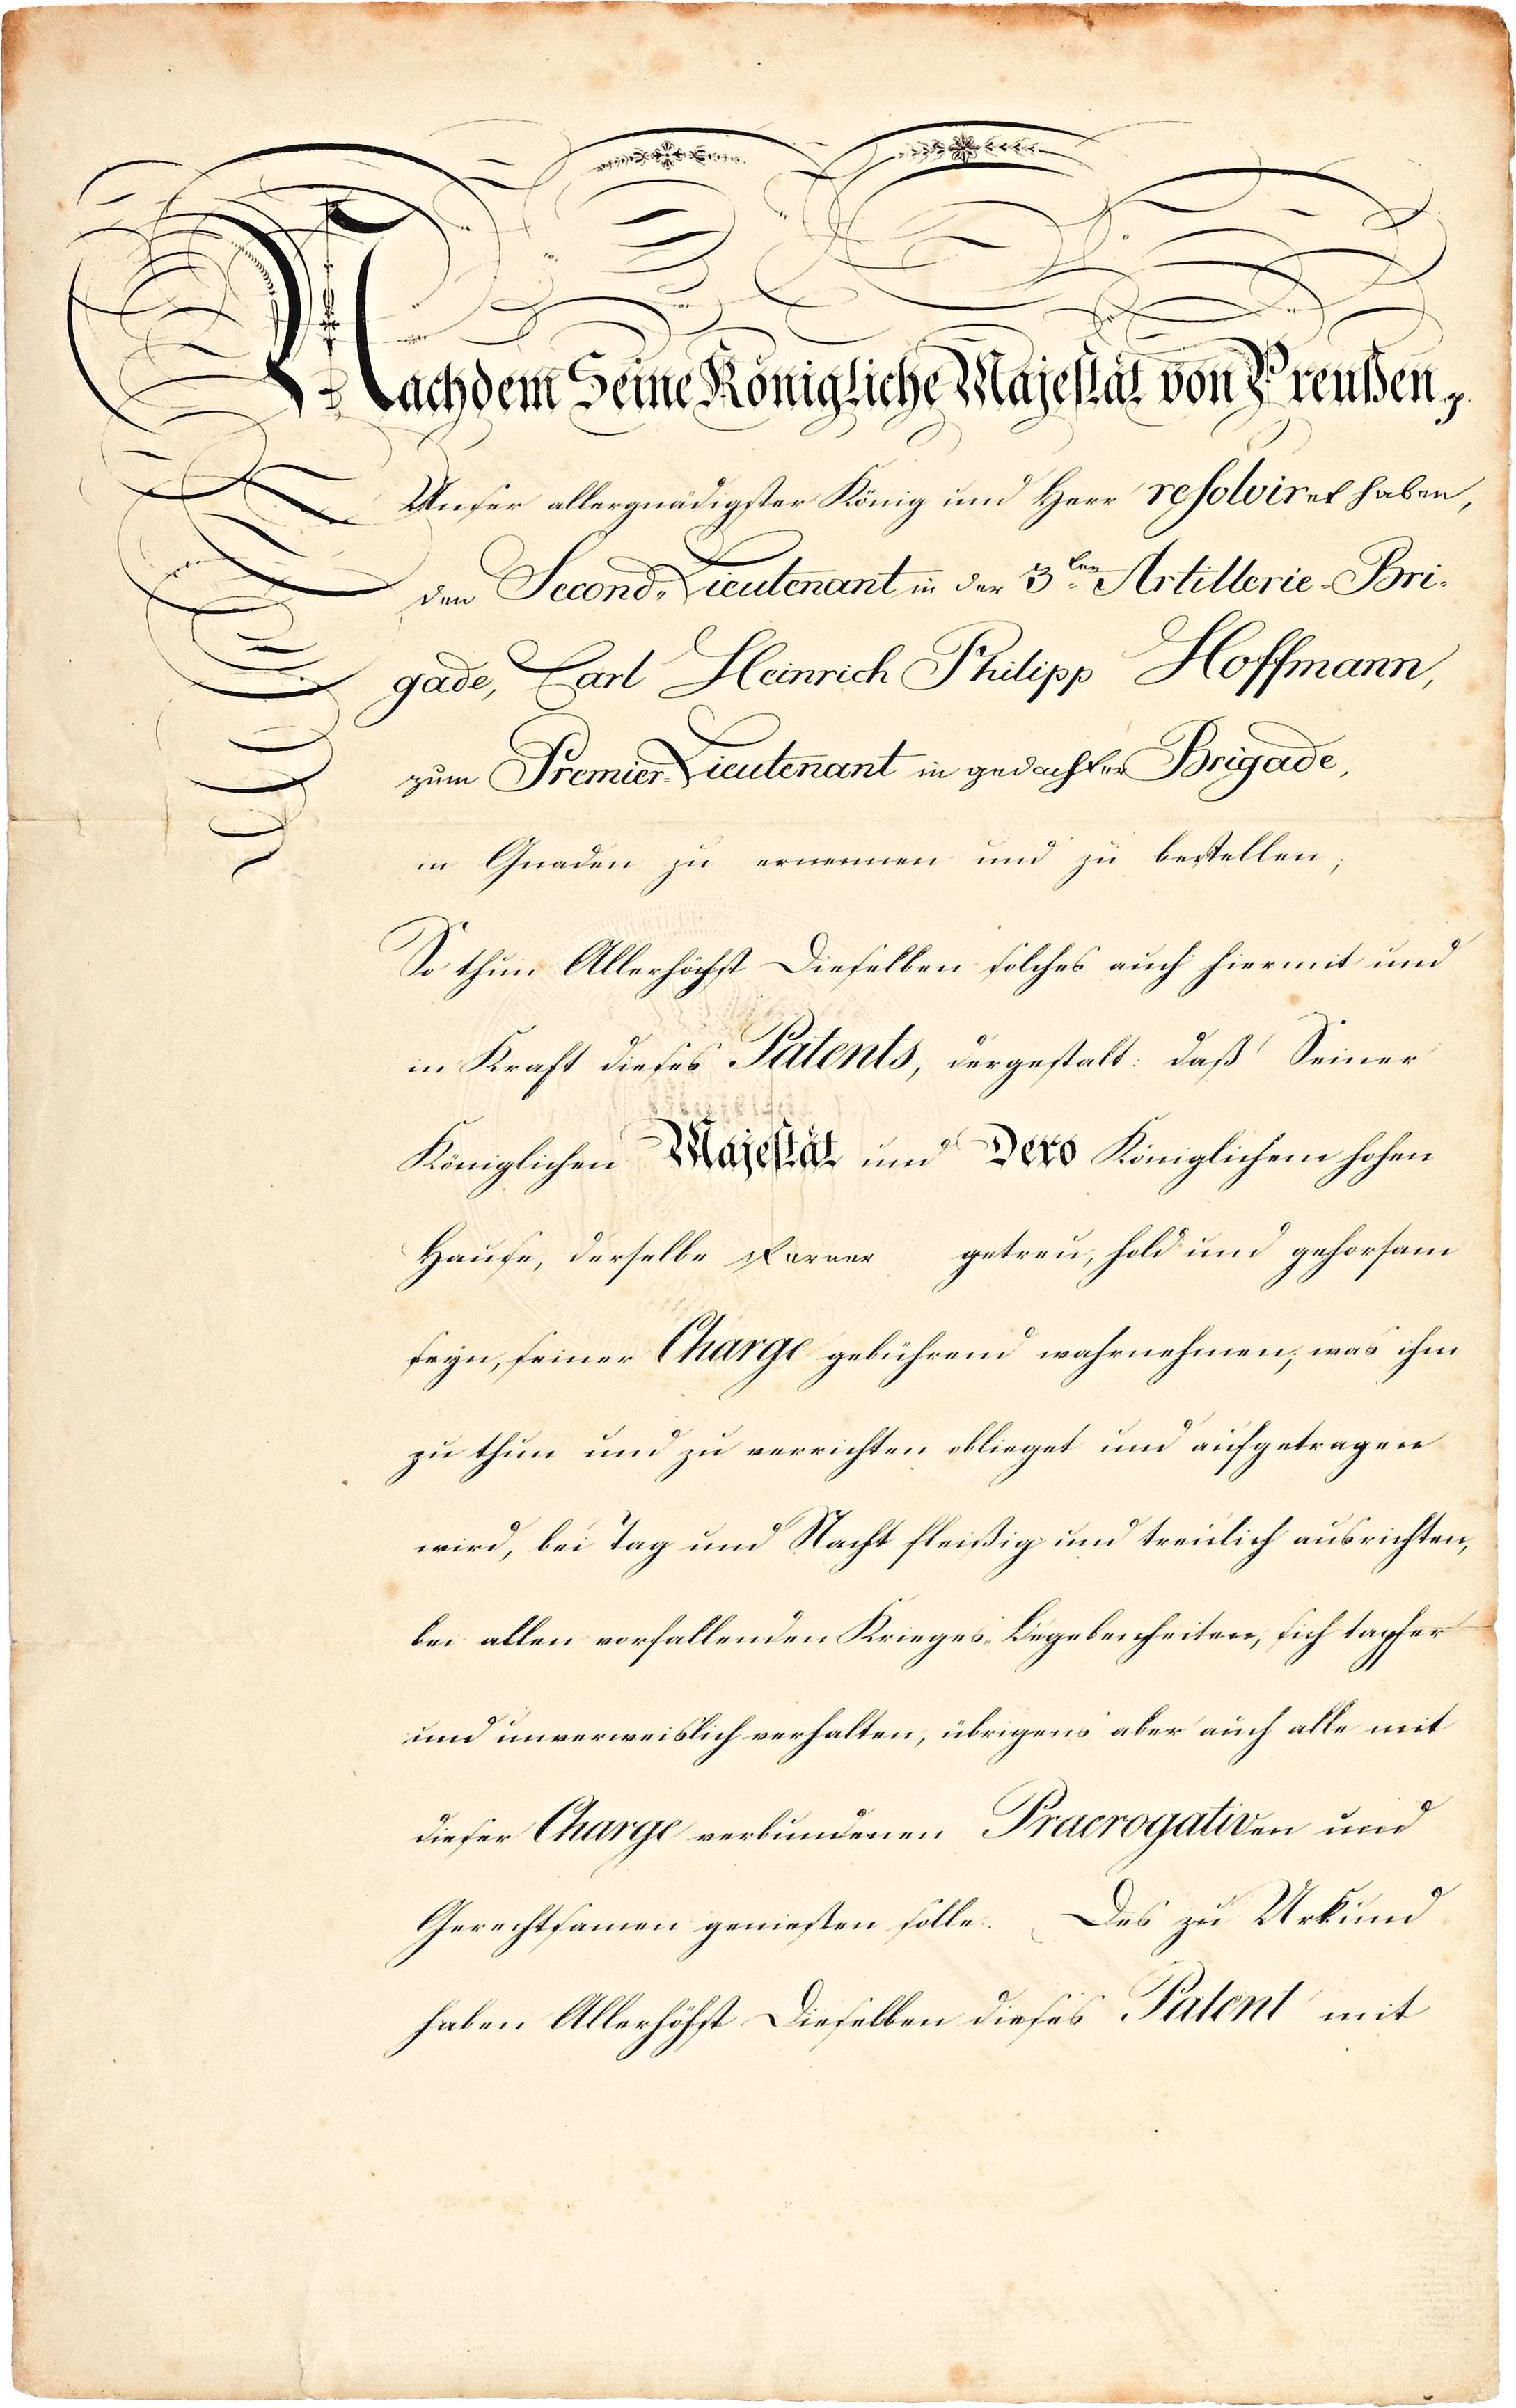 Nachdem Seine Königliche Majestät von Preußen p.
Unser allergnädigster König und Herr resolviret haben,
den Second-Lieutenant in der 3ten Artillerie-Bri-
gade, Carl Heinrich Philipp Hoffmann,
zum Premier-Lieutenant in gedachter Brigade,
in Gnaden zu ernennen und zu bestellen;
So thun Allerhöchst Dieselben solches auch hiermit und
in Kraft dieses Patents, dergestalt: daß Seiner
Königlichen Majestät und Dero Königlichem hohen
Hause, derselbe ferner getreu, hold und gehorsam
seyn, seiner Charge gebührend wahrnehmen, was ihm
zu thun und zu verrichten oblieget und aufgetragen
wird, bei Tag und Nacht fleißig und treulich ausrichten,
bei allen vorfallenden Krieges-Begebenheiten, sich tapfer
und unverweislich verhalten, übrigens aber auch alle mit
dieser Charge verbundenen Praerogativen und
Gerechtsamen genießen solle. Des zu Urkund
haben Allerhöchst Dieselben dieses Patent mit